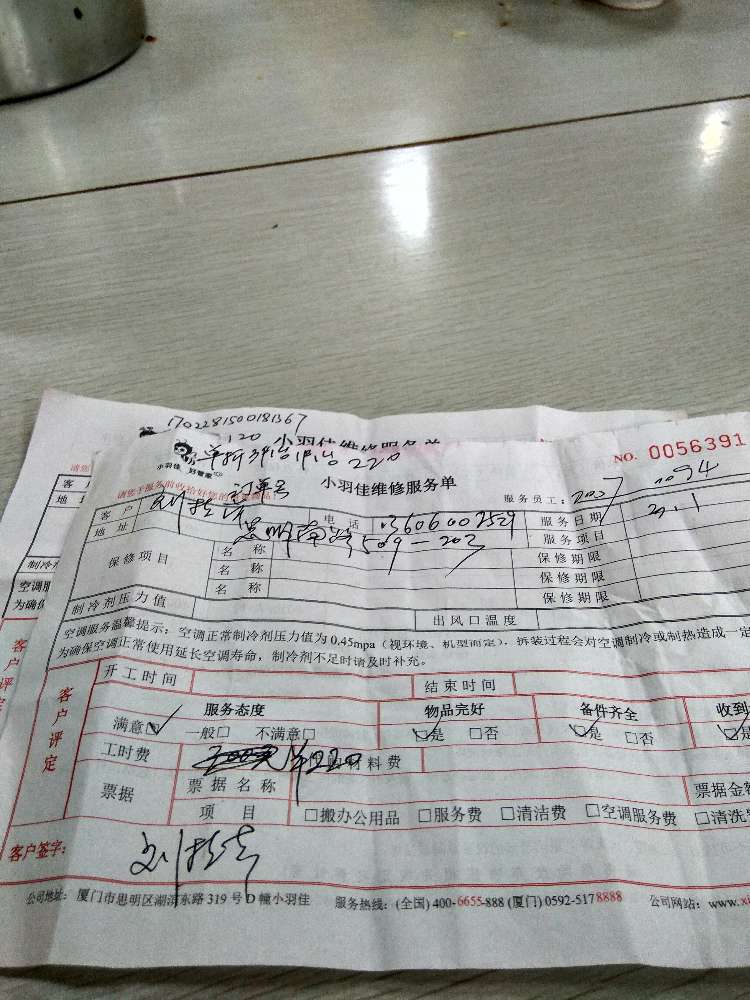 1702281500181367
小羽佳维修服务单
220
NO. 0056391
小羽佳 好管家
小羽佳维修服务单
请您于服务前收拾好您的
服务员工:
客户
电话 13606003529
服务日期
地址 思明南路509-203
服务项目
保修项目
名称
保修期限
名称
保修期限
名称
保修期限
制冷剂压力值
出风口温度
空调服务温馨提示:空调正常制冷剂压力值为0.45mpa(视环境、机型而定),拆装过程会对空调制冷或制热造成一定
为确保空调正常使用延长空调寿命,制冷剂不足时请及时补充。
客户评定
开工时间
结束时间
服务态度
物品完好
备件齐全
收到
满意☑ 一般□ 不满意□
☑是 □否
☑是 □否
☑是
工时费
220
材料费
票据
票据名称
票据金额
项目
□搬办公用品 □服务费 □清洁费 □空调服务费 □清洗
客户签字:
公司地址:厦门市思明区湖滨东路319号D幢小羽佳 服务热线:(全国)400-6655-888 (厦门)0592-5178888 公司网站:www.xi